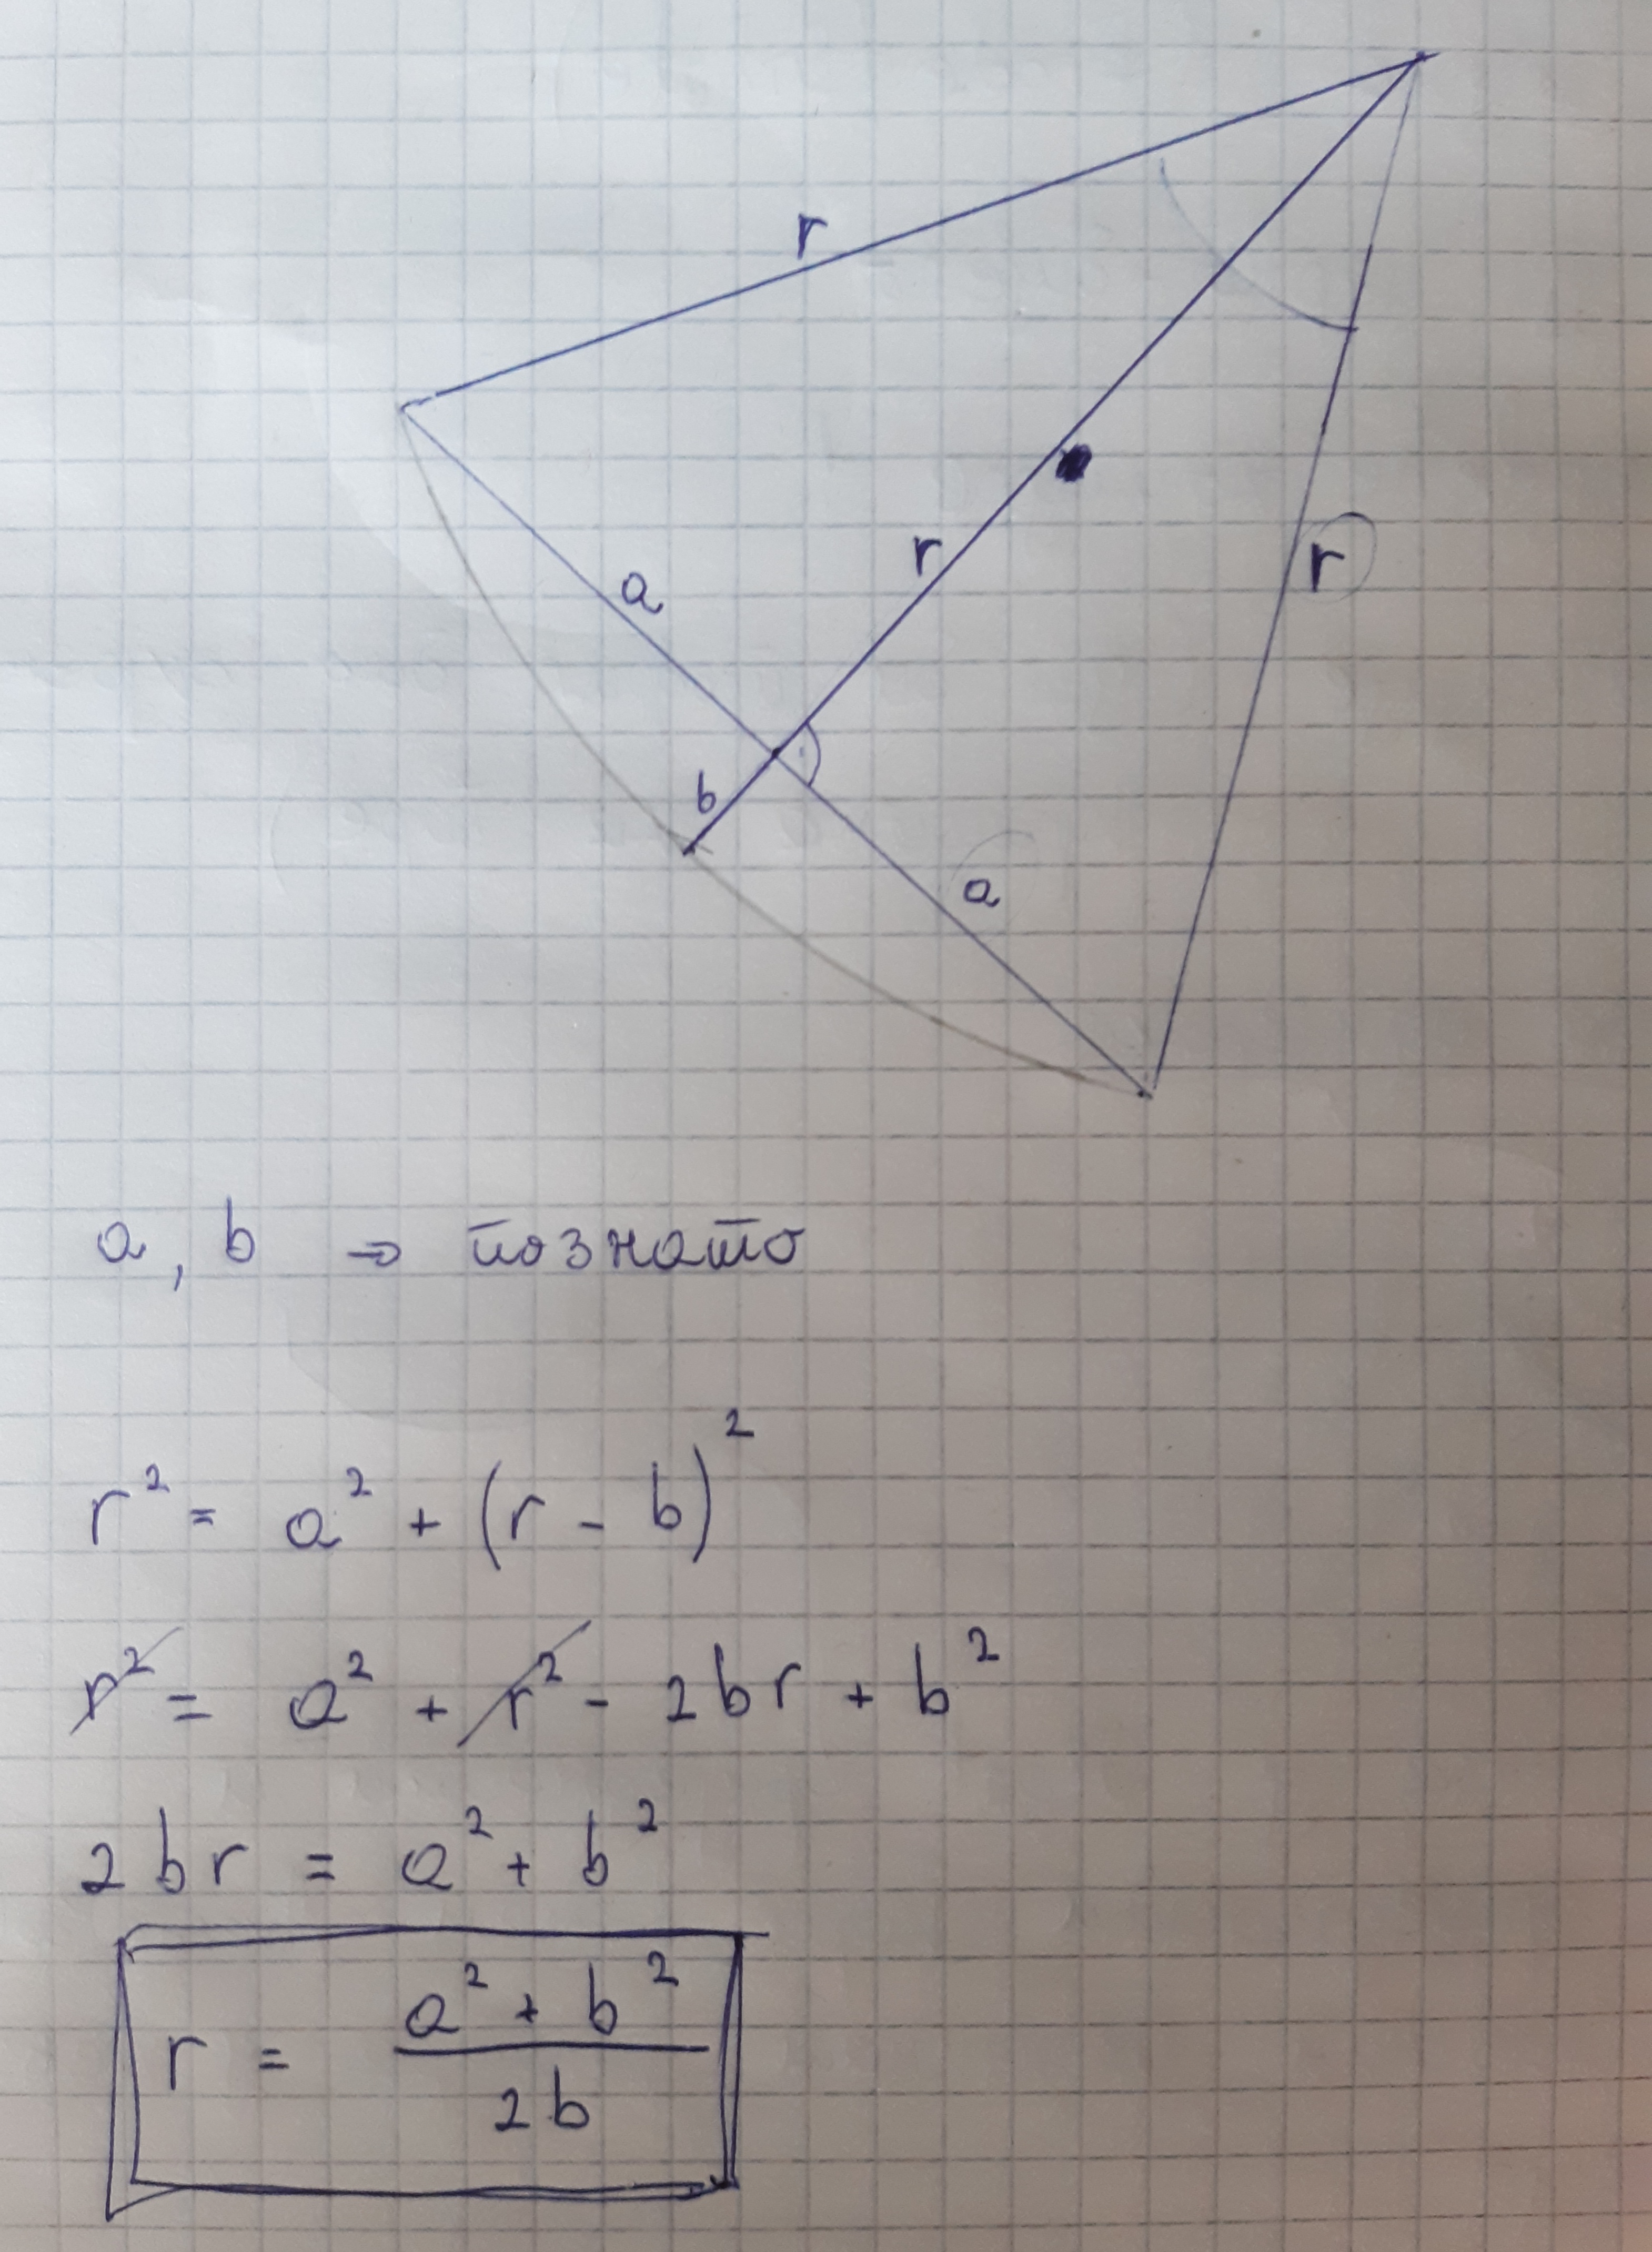 r
r
r
a
b
a
a, b ⇒ познато
r² = a² + (r - b)²
r² = a² + r² - 2br + b²
2br = a² + b²
r = a² + b² / 2b